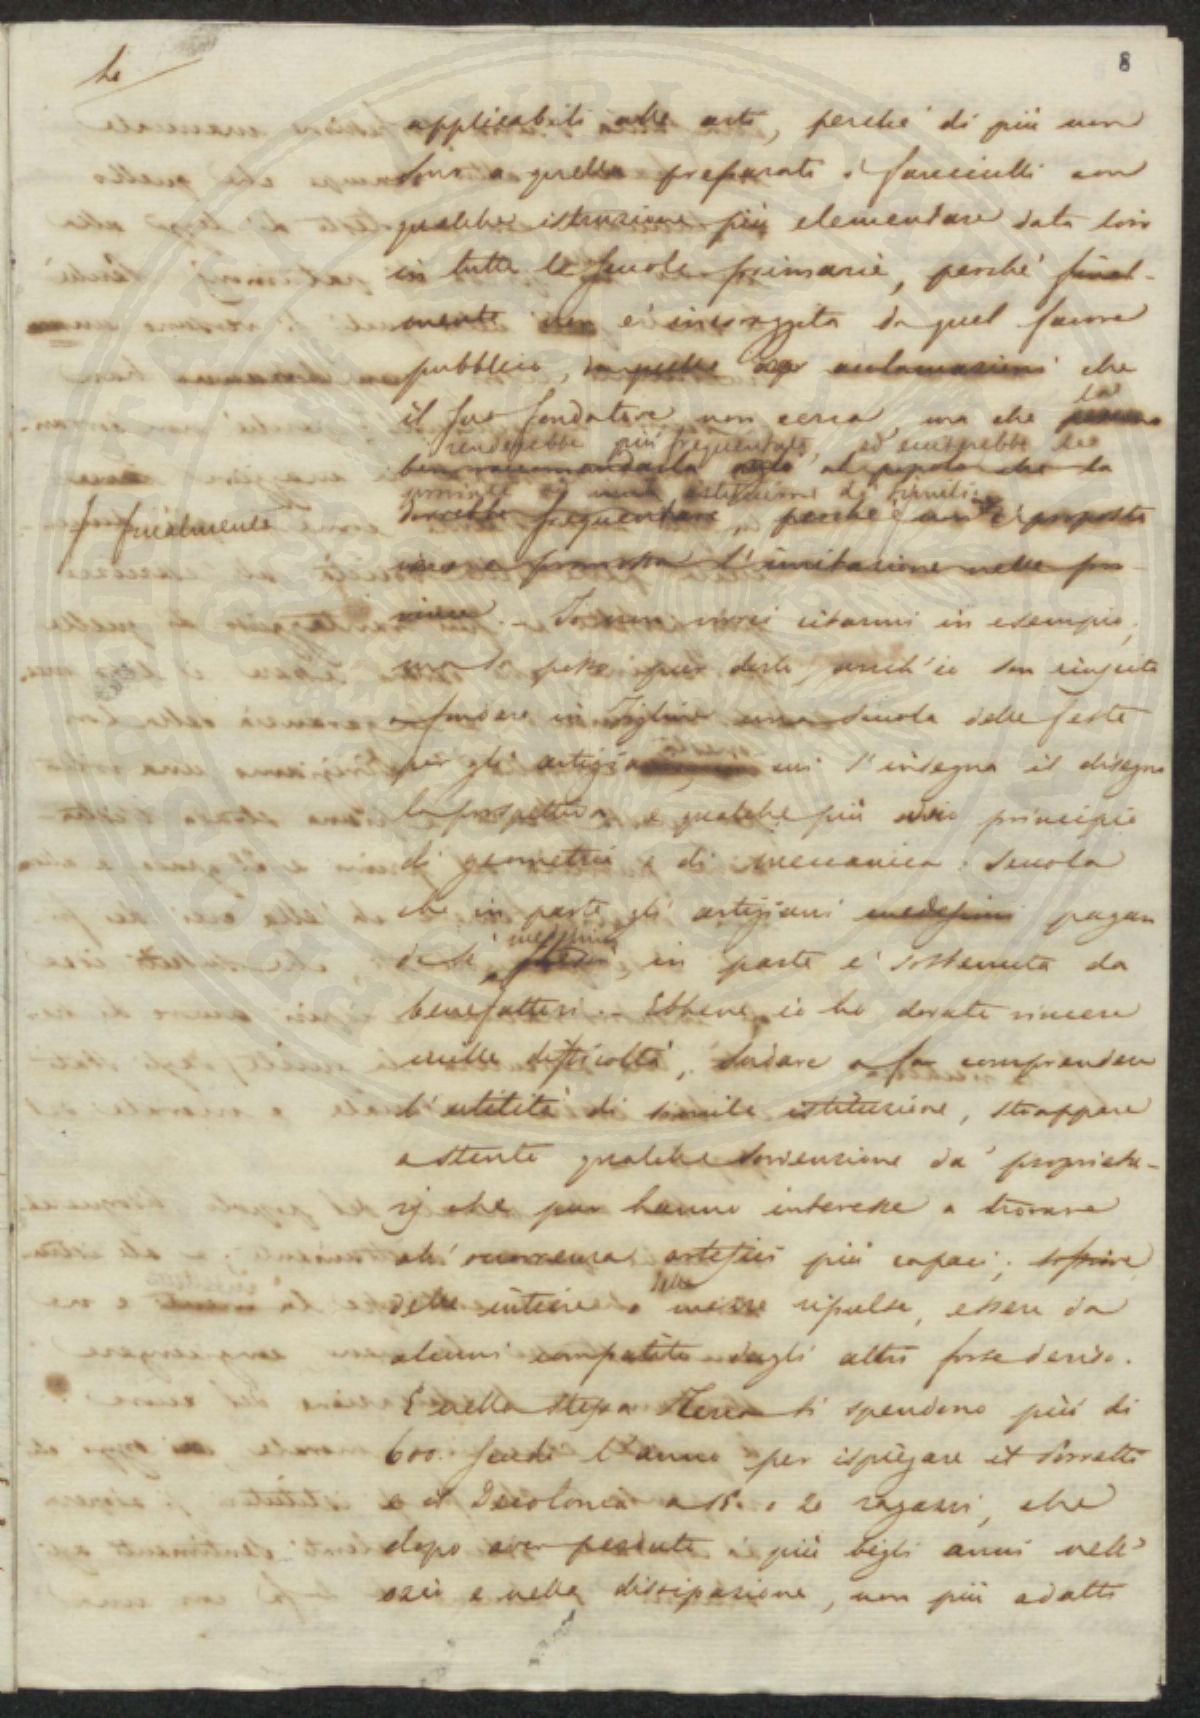 8
applicabili alle arti, perché di più non
sono a quella preparati i fanciulli con
qualche istruzione più elementare data loro
in tutte le Scuole primarie, perché final-
mente non è incoraggita da quel favore
pubblico, da quelle acclamazioni che
il suo fondatore non cerca, ma che la
renderebbe più frequentata, ed ecciterebbe le
ben raccomandarla al popolo che la
provincie ad una istituzione di simili
dovrebbe frequentare, perché non è proposta
finalmente
e promossa l'imitazione nelle pro-
vincie. - Io non vorrei citarmi in esempio,
ma lo posso pur dirlo, anch'io son riuscito
a fondare in Figline una scuola delle feste
per gli artigiani, cui s'insegna il disegno
la prospettiva e qualche più ovvio principio
di geometria e di meccanica. Scuola
che in parte gli artigiani medesimi pagan
da sé medesimi, in parte è sostenuta da
benefattori. - Ebbene io ho dovuto vincere
mille difficoltà, sudare a far comprendere
l'utilità di simile istituzione, strappare
a stento qualche sovvenzione da' proprieta-
rj che pur hanno interesse a trovare
all'occorrenza artefici più capaci, soffrire
delle intiere o delle mezze ripulse, essere da
alcuni compatito dagli altri forse deriso.
E nella stessa Terra si spendono più di
600. Scudi l'anno per ispiegare il Porretti
e il Decolonia a 15. o 20 ragazzi, che
dopo aver perduti i più begli anni nell'
ozio e nella dissipazione, non più adatti